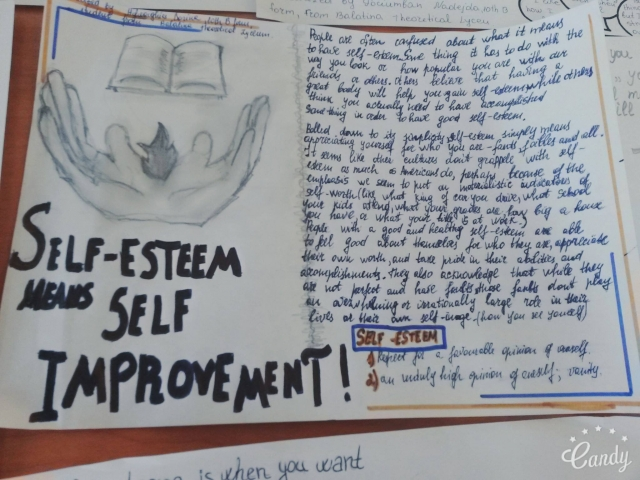 form, from Balatina Theoretical Lyceum
Theoretical Lyceum
SELF-ESTEEM
MEANS SELF
IMPROVEMENT!
People are often confused about what it means
to have self-esteem. Some thing it has to do with the
way you look or how popular you are with our
friends or others. Others believe that having a
great body will help you gain self-esteem while others
think you actually need to have accomplished
something in order to have good self-esteem.
Boiled down to its simplicity, self-esteem simply means
appreciating yourself for who you are - faults, and all.
It seems like other cultures don't grapple with self-
esteem as much as Americans do, perhaps because of the
emphasis we seem to put on materialistic indicators of
self-worth (like what king of car you drive, what school
your kids attend, what your grades are, how big a house
you have, or what your title is at work)
People with a good and healthy self-esteem are able
to feel good about themselves for who they are, appreciate
their own worth, and take pride in their abilities, and
accomplishments. They also acknowledge that while they
are not perfect and have faults, those faults don't play
an overwhelming or irrationally large role in their
lives or their own self-image. (how you see yourself)
SELF-ESTEEM
1) Respect for a favourable opinion of oneself.
2) an unduly high opinion of oneself; vanity.
is when you want
Candy